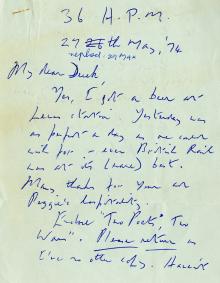 36 H.P.M.
27 26th May, '74
replied. 29 MAY
My dear Duck,
Yes, I got a beer at
Lewes station. Yesterday was
as perfect a day as we could
wish for - even British Rail
was at its (rare) best.
Many thanks for your and
Peggie's hospitality.
Enclose "Two Poets, Two
Wars". Please return as
I've no other copy. Haven't